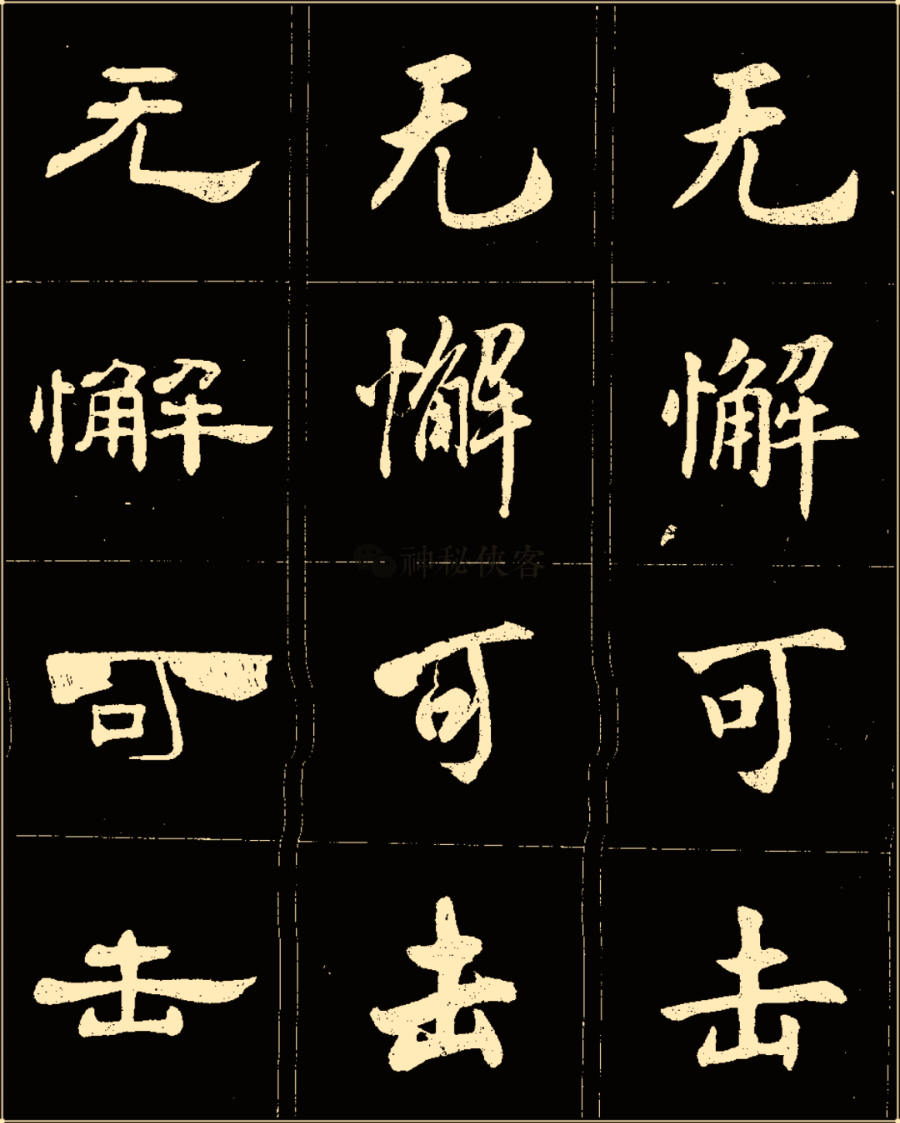 无 无 无
懈 懈 懈
神秘侠客
可 可 可
击 击 击